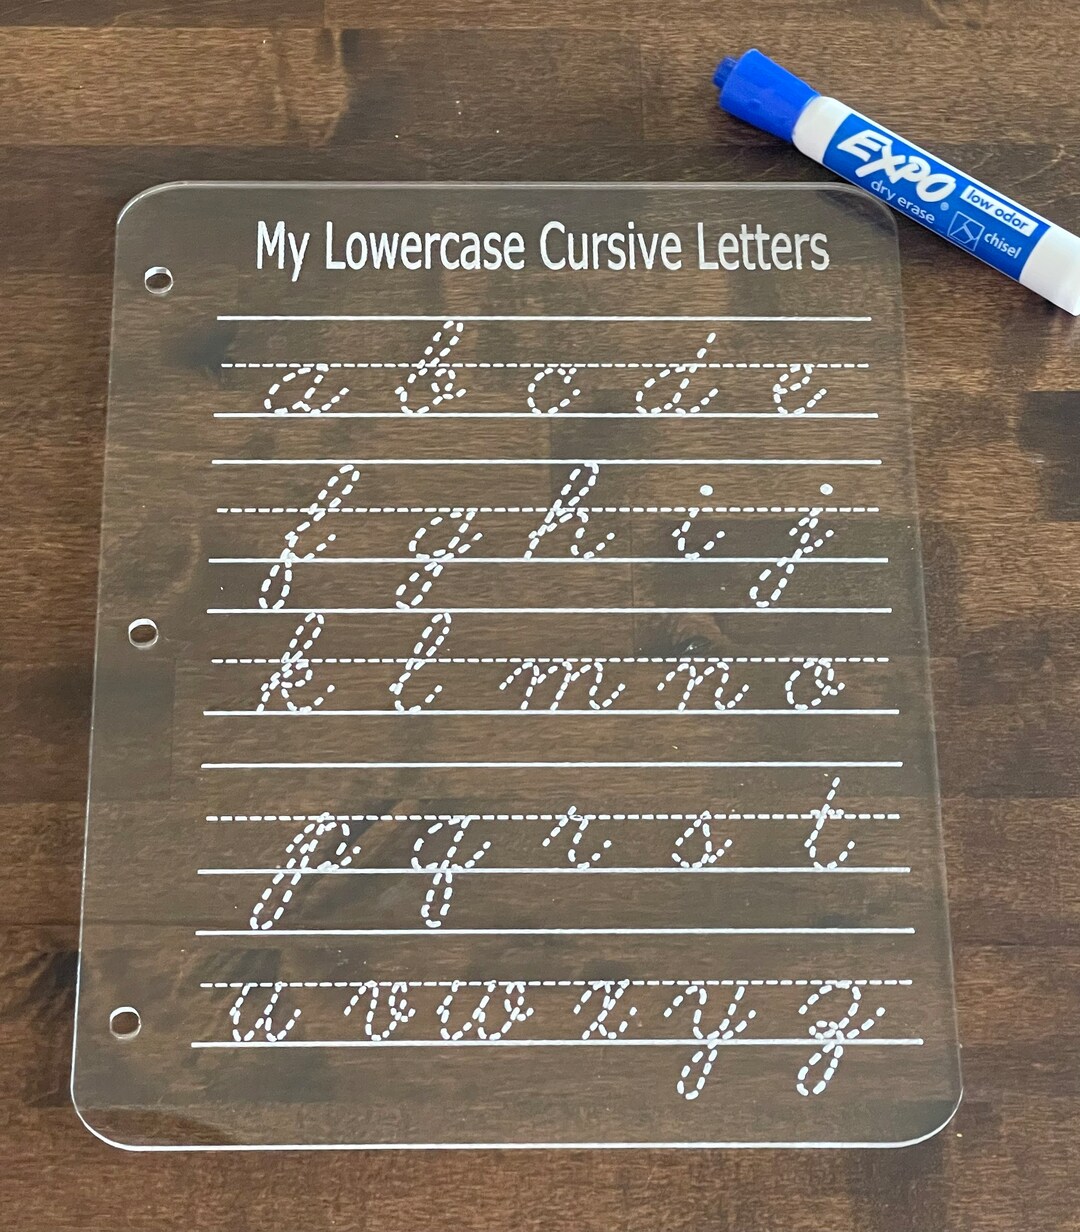 My Lowercase Cursive Letters
a b c d e
f g h i j
k l m n o
p q r s t
u v w x y z
EXPO®
low odor
dry erase
chisel